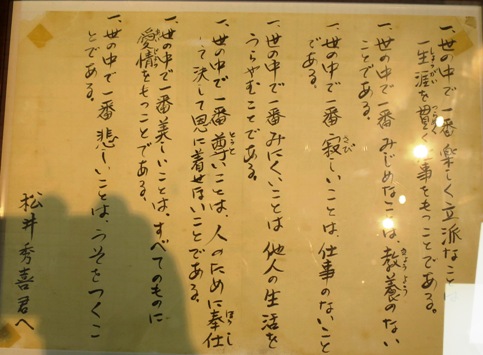 一、世の中で一番楽しく立派なことは
一生涯を貫く仕事をもつことである。
一、世の中で一番みじめなことは、教養のない
ことである。
一、世の中で一番寂しいことは、仕事のないこと
である。
一、世の中で一番みにくいことは他人の生活を
うらやむことである。
一、世の中で一番尊いことは、人のために奉仕
して決して恩に着せないことである。
一、世の中で一番美しいことは、すべてのものに
愛情をもつことである。
一、世の中で一番悲しいことは、うそをつくこ
とである。
松井秀喜君へ